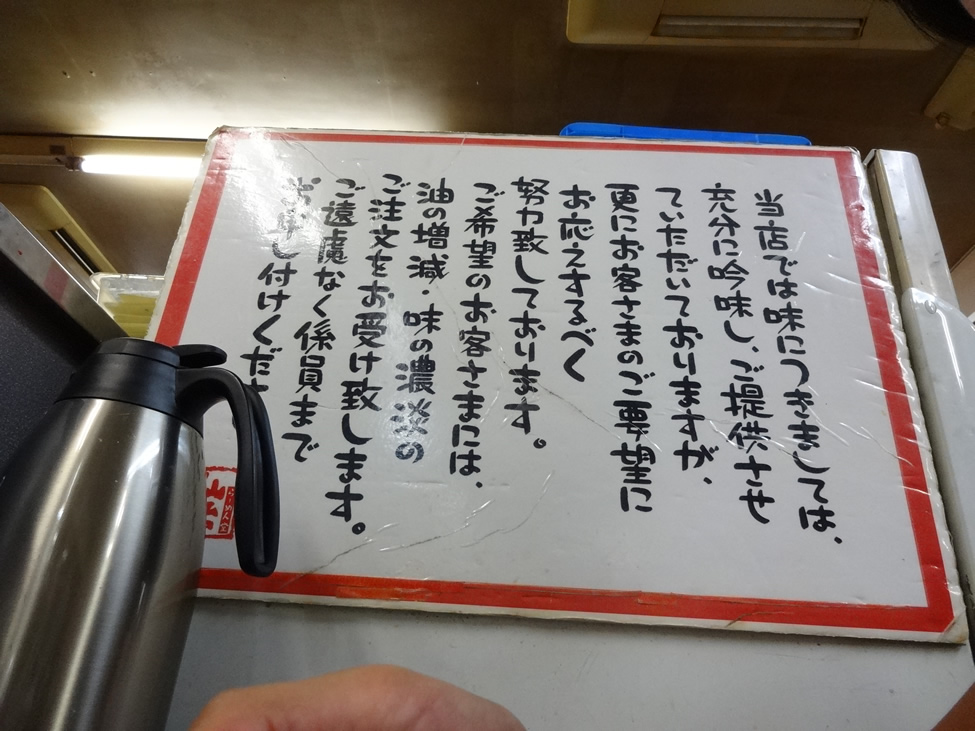 当店では味につきましては、
充分に吟味し、ご提供させ
ていただいておりますが、
更にお客さまのご要望に
お応えするべく
努力致しております。
ご希望のお客さまには、
油の増減・味の濃淡の
ご注文をお受け致します。
ご遠慮なく係員まで
お申し付けくださ
らーめん